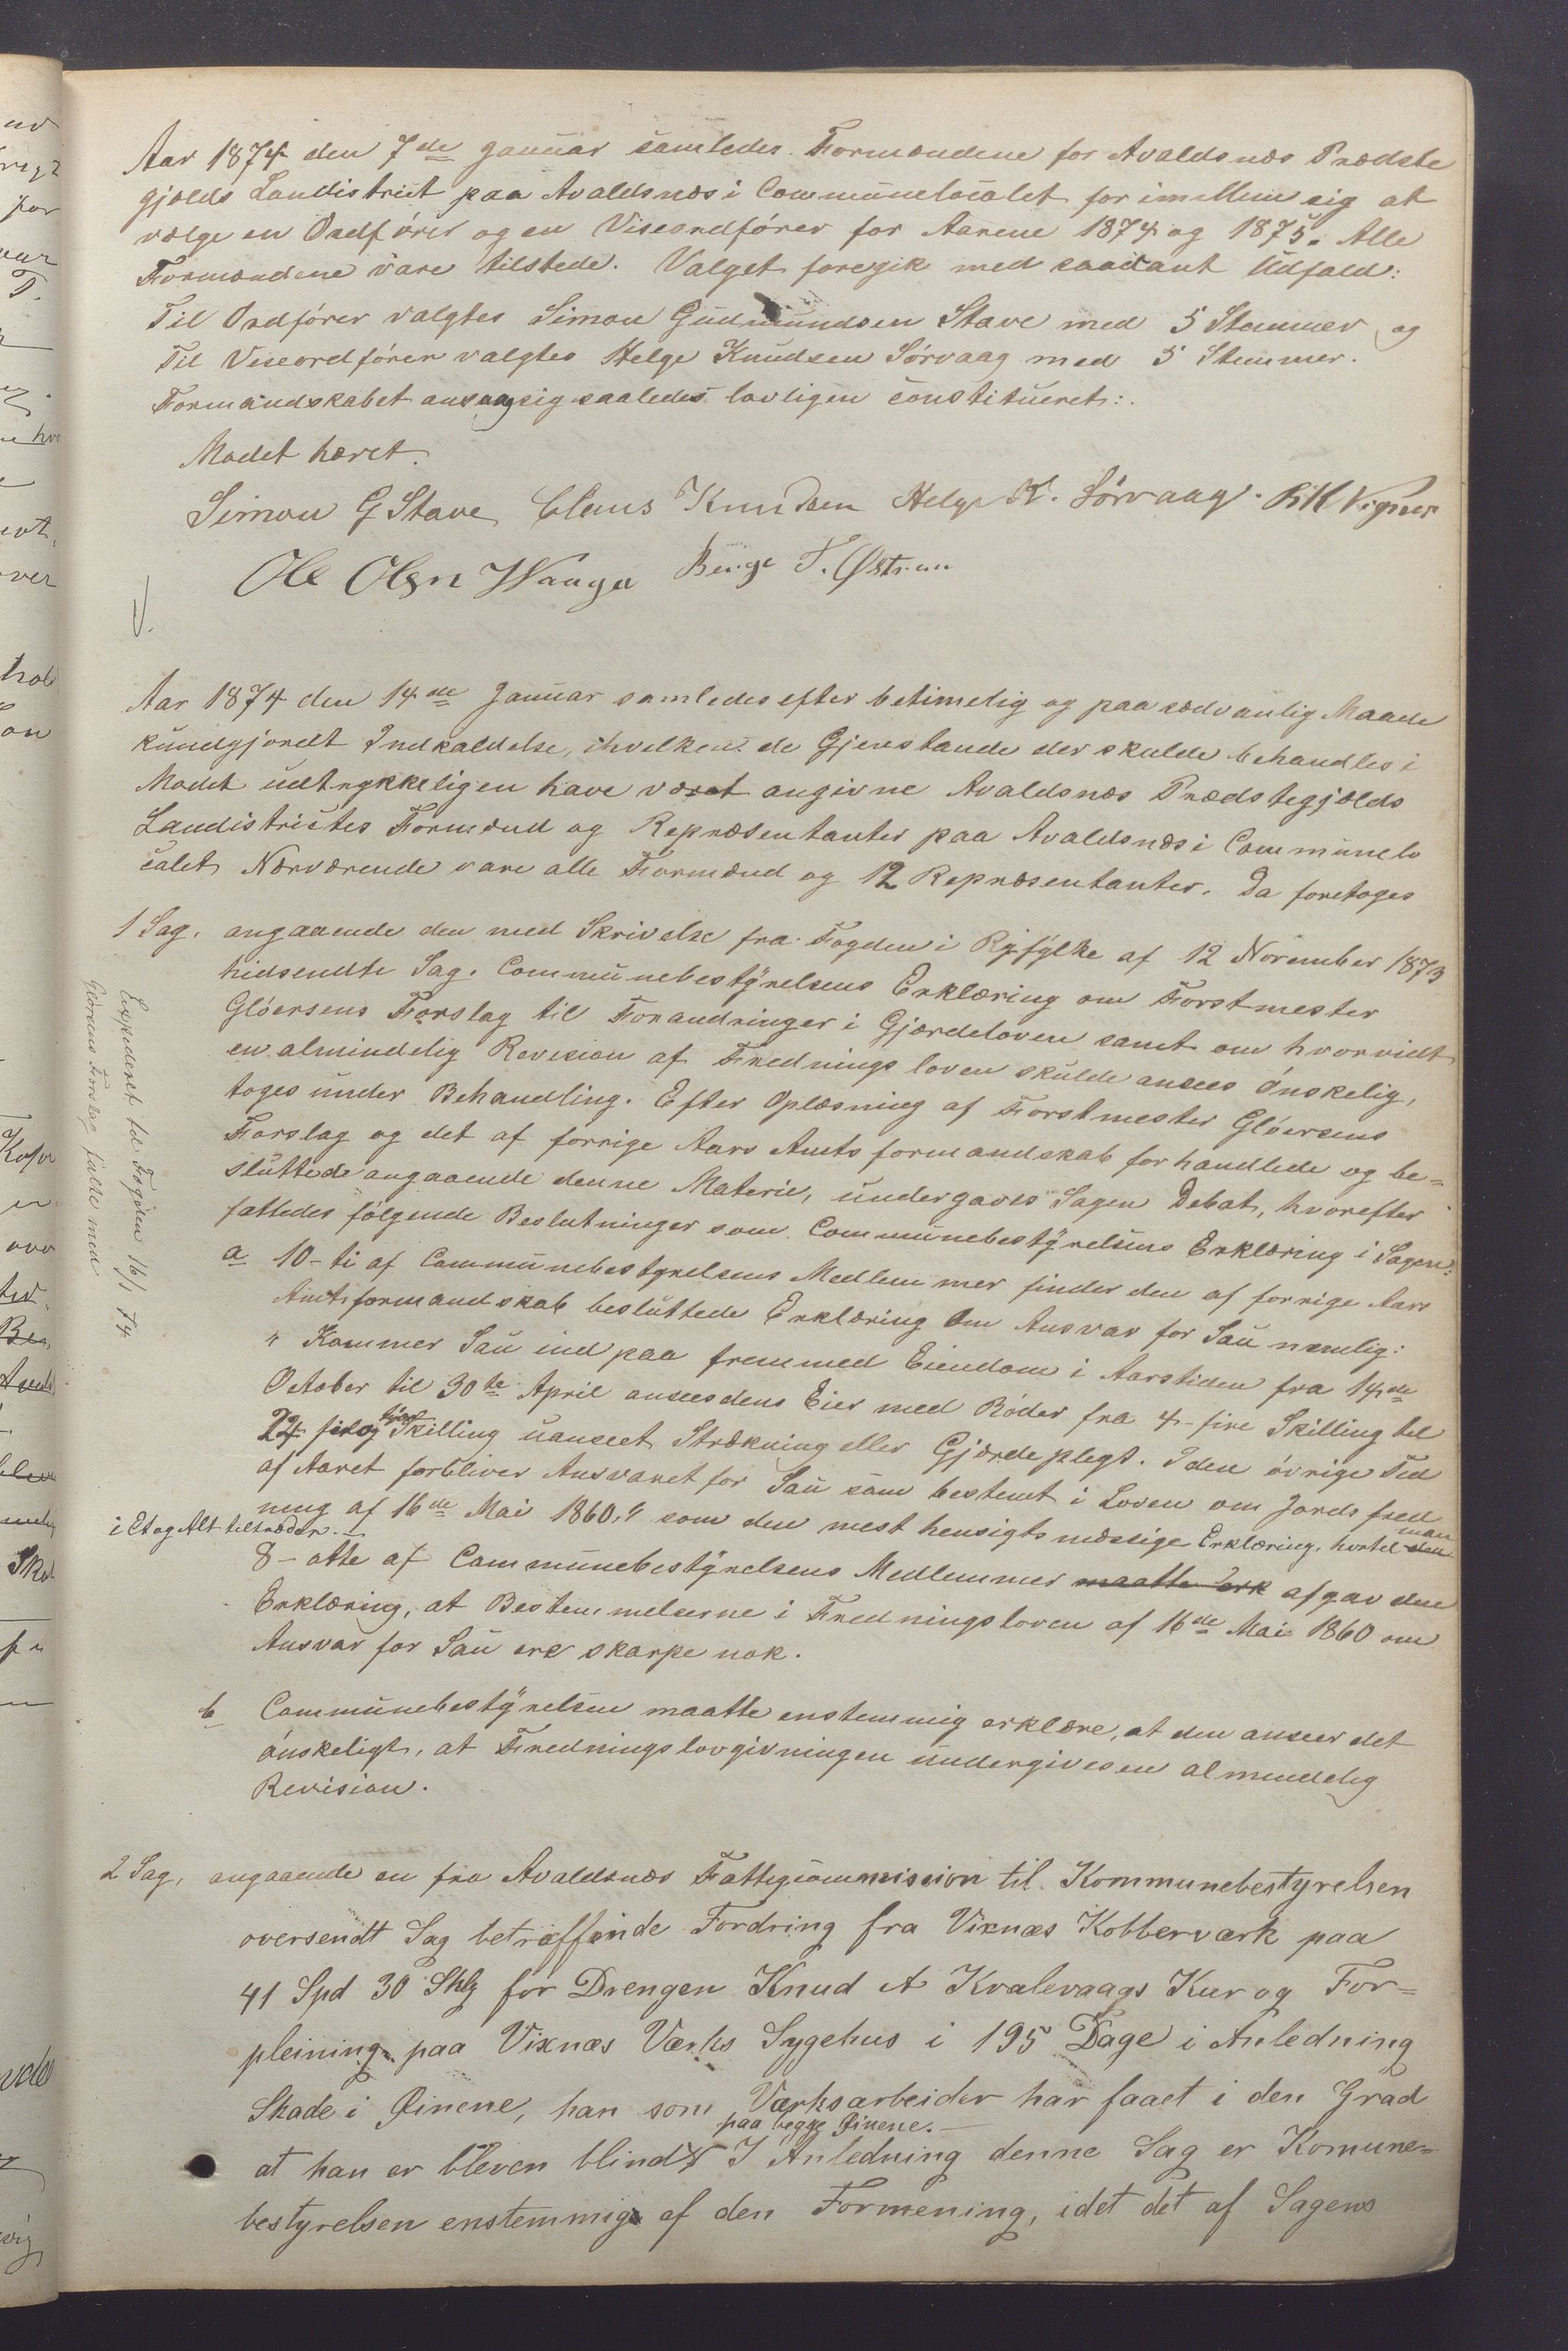 Aar 1874 den 7de Januar samledes Formændene for Avaldsnæs Prædste
gjælds Landistrict paa Avaldsnæs i Communelocalet for imellem sig at
vælge en Ordfører og en Viseordfører for Aarene 1874 og 1875. Alle
Formændene vare tilstede. Valget foregik med saadant Udfald:
Til Ordfører valgtes Simon Gudmundsen Stave med 5 Stemmer og
Til Viseordfører valgtes Helge Knudsen Sørvaag med 5 Stemmer.
Formandskabet ansaag sig saaledes lovligen constitueret:.
Mødet hævet.
Simon G Stave Claus Knudsen Helge K. Sørvaag.
Ole Olsen Waage Børge T.
V.
Aar 1874 den 14de Januar samledes efter betimelig og paa sædvanlig Maade
kundgjordt Indkaldelse, i hvilken de Gjenstande der skulde behandles i
Mødet udtrykkeligen have været angivne Avaldsnæs Prædstegjælds
Landistrictes Formænd og Repræsentanter paa Avaldsnæs i Communelo
calet Nærværende vare alle Formænd og 12 Repræsentanter. Da foretoges
1 Sag, angaaende den med Skrivelse fra Fogden i Ryfylke af 12 November 1873
hidsendte Sag. Communebestyrelsens Erklæring om Forstmester
Gløersens Forslag til Forandringer i Gjærdeloven samt om hvorvidt
en almindelig Revision af Fredningsloven skulde ansees ønskelig,
toges under Behandling. Efter Oplæsning af Forstmester Gløersens
Forslag og det af forrige Aars Amtsformandskab forhandlede og be=
sluttede angaaende denne Materie, undergaves Sagen Debat, hvorefter
fattedes følgende Beslutninger som Communebestyrelsens Erklæring i Sagen:
a 10-ti af Communebestyrelsens Medlemmer finder den af forrige Aars
Amtsformandskab besluttede Erklæring om Ansvar for Sau nemlig:
" Kommer Sau ind paa fremmed Eiendom i Aarstiden fra 14de
October til 30te April ansees dens Eier med Bøder fra 4-fire Skilling til
24 fire og tyve Skilling uanseet Strækning eller Gjærdeplegt. I den øvrige Tid
af Aaret forbliver Ansvaret for Sau som bestemt i Loven om Jords fred
ning af 16de Mai 1860," som den mest hensigtsmæssige Erklæring, hvortil den man
i Et og Alt tiltræder.
8-otte af Communebestyrelsens Medlemmer maatte erk afgav den
Erklæring, at Bestemmelserne i Fredningsloven af 16de Mai 1860 om
Ansvar for Sau ere skarpe nok.
b Communebestyrelsen maatte enstemmig erklære, at den anseer det
ønskeligt, at Fredningslovgivningen undergives en almindelig
Revision.
Expederet til Fogden 16/1 74
Gløersens Forslag fulte med
2 Sag, angaaende en fra Avaldsnæs Fattigcommission til Kommunebestyrelsen
oversendt Sag betræffende Fordring fra Vixnæs Kobberværk paa
41 Spd 30 Sklg for Drengen Knud A Kvalevaags Kur og For=
pleining paa Vixnæs Værks Sygehus i 195 Dage i Anledning
Skade i Øinene, han som Værksarbeider har faaet i den Grad
at han er bleven blind paa begge Øinene.- I Anledning denne Sag er Komune=
bestyrelsen enstemmig af den Formening, idet det af Sagens